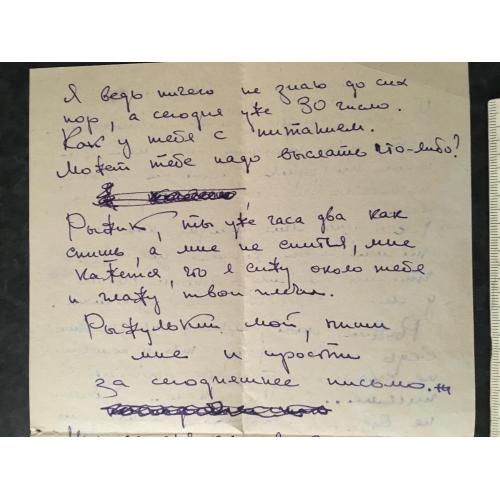 Я ведь ничего не знаю до сих
пор, а сегодня уже 30 число.
Как у тебя с питанием.
Может тебе надо выслать что-либо?
Рыжик, ты уже часа два как
спишь, а мне не спится, мне
кажется, что я сижу около тебя
и глажу твои плечи.
Рыжулькин мой, пиши
мне и прости
за сегодняшнее письмо.